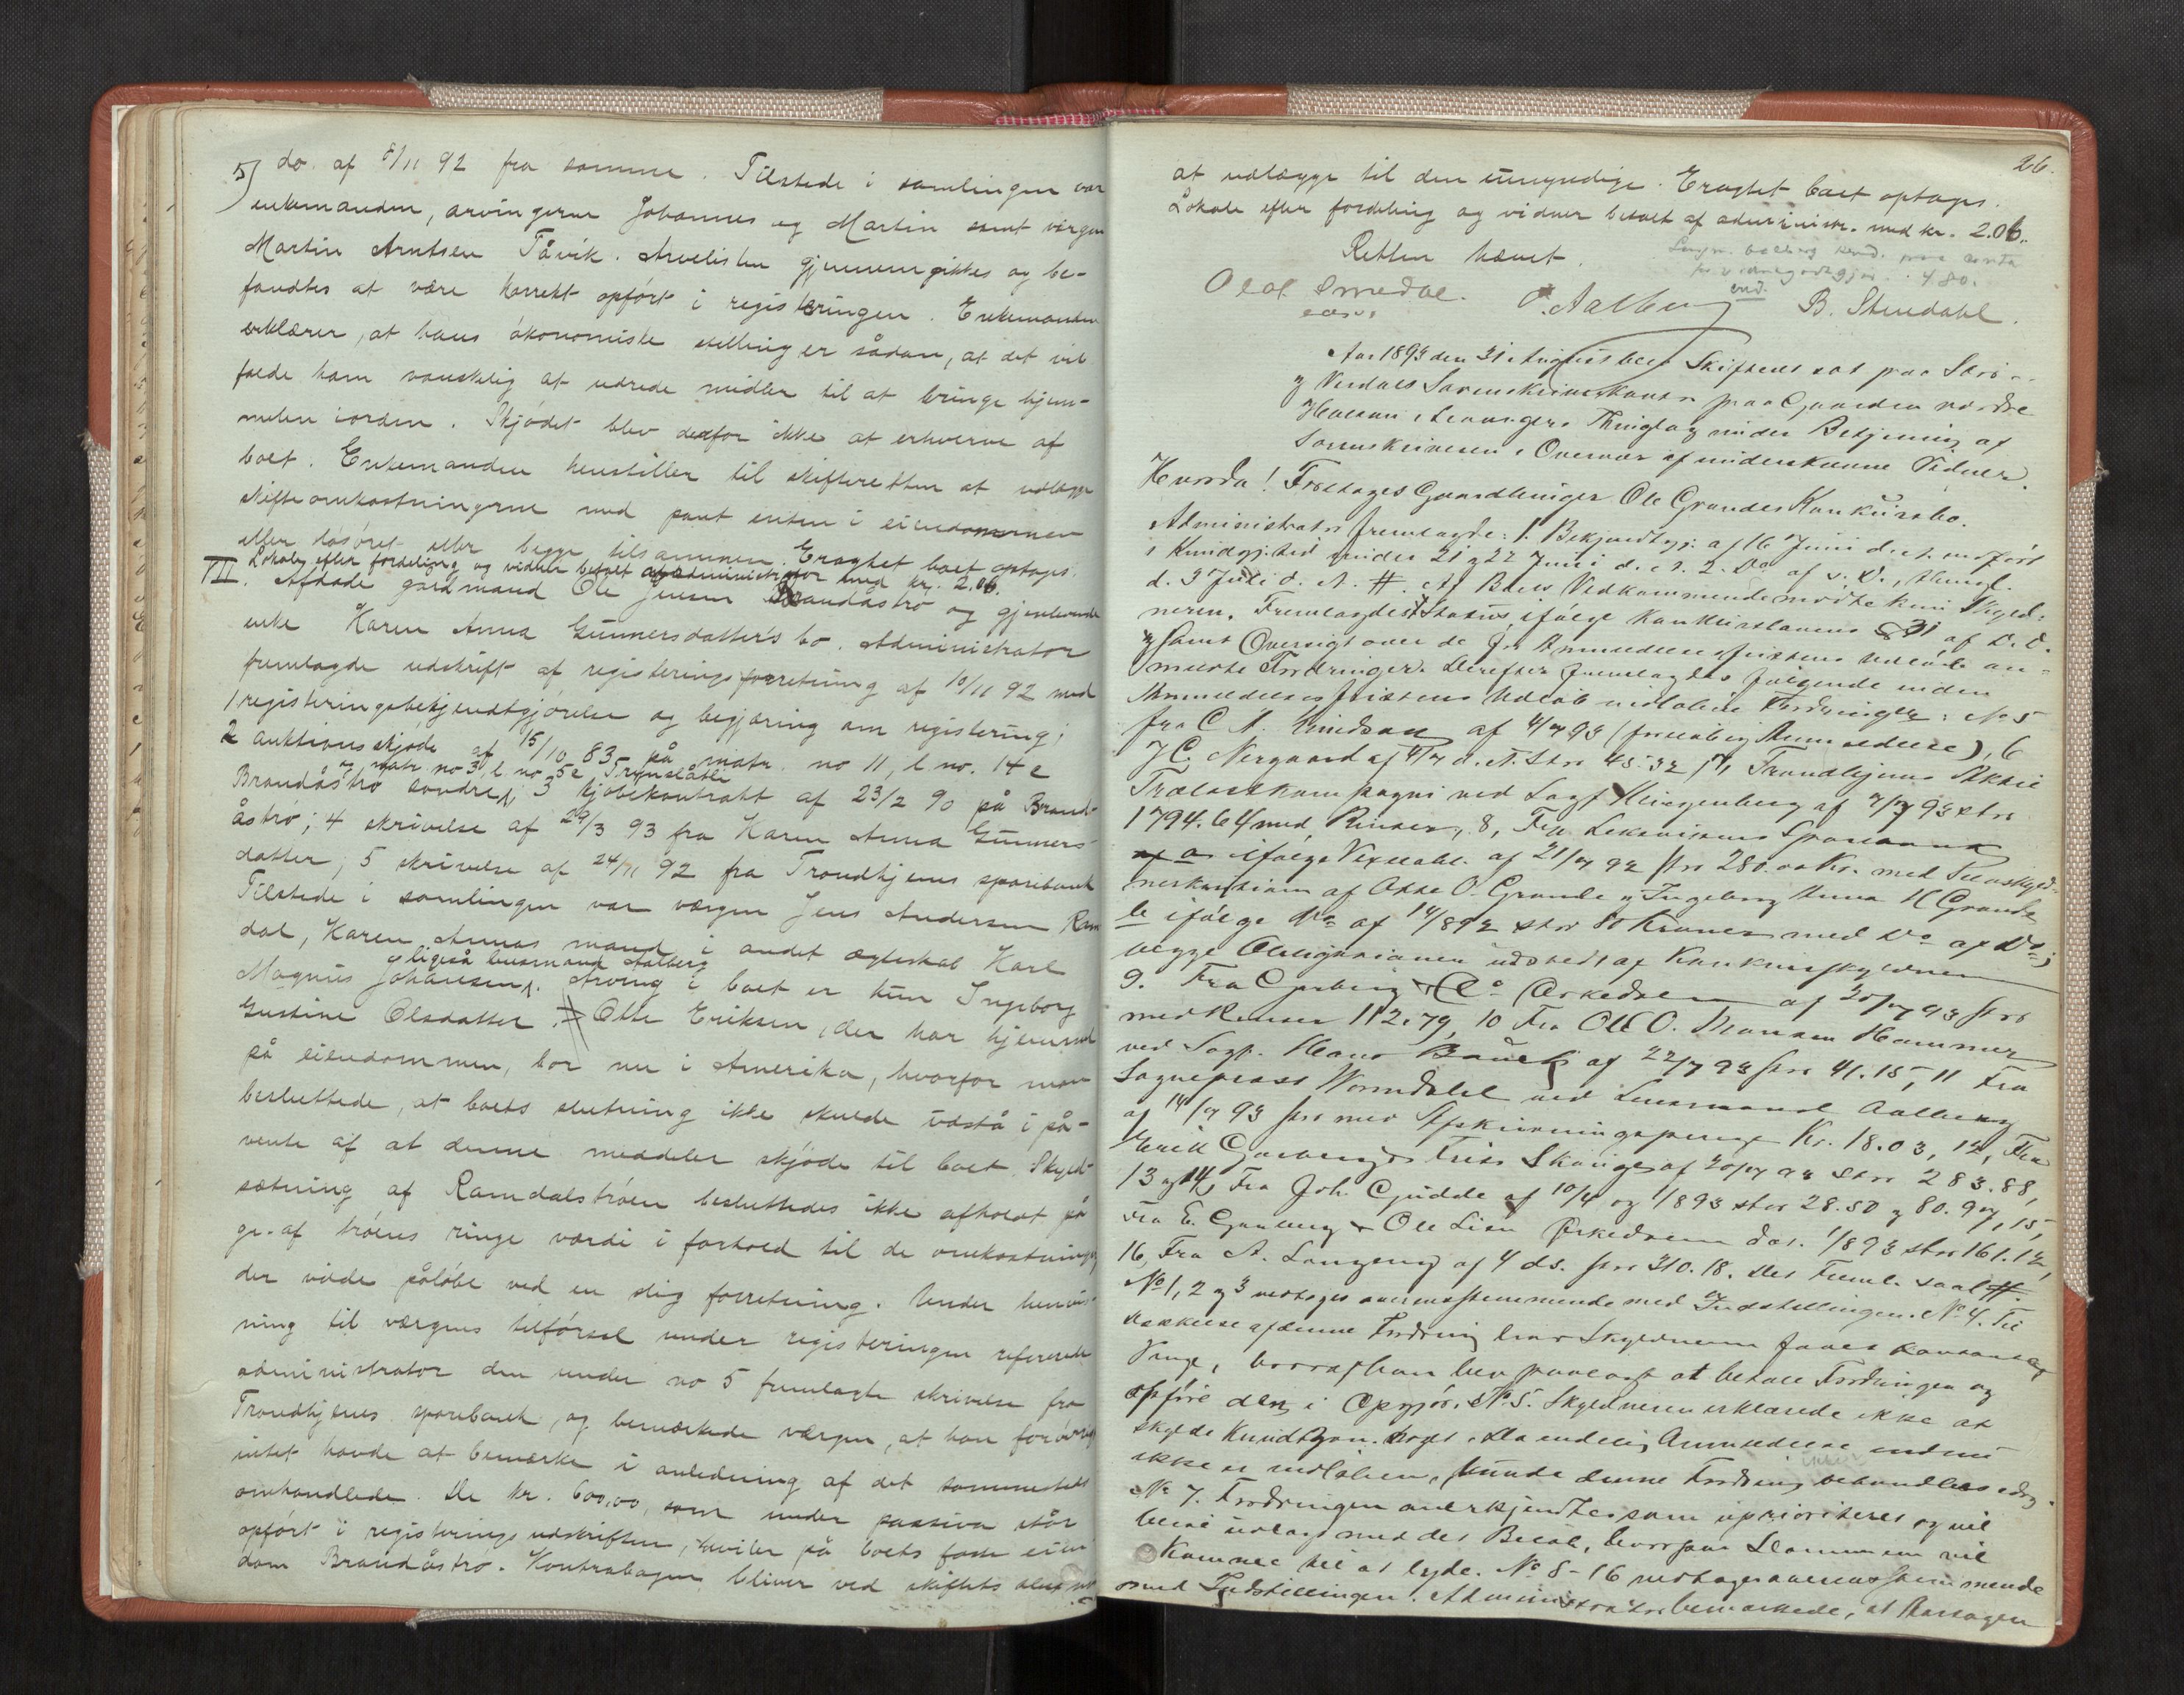 5) do. af 8/11 92 fra samme. Tilstede i samlingen var
enkemanden, arvingerne Johannes og Martin samt værgen
Martin Arntsen Tåvik. Arvelisten gjennemgikkes og be-
fandtes at være korrekt opført i registeringen. Enkemanden
erklærer, at hans økonomiske stilling er sådan, at det vil
falde ham vanskelig at udrede midler til at bringe hjem-
melen iorden. Skjødet blev derfor ikke at erhverve af
boet. Enkemanden henstiller til skifteretten at udlægge
skifteomkostningerne mod pant enten i eiendommen
eller løsøret eller begge tilsammen. Eragtet boet optages.
Lokale efter fordeling og vidner betalt af administrator med kr. 2.06.
VII. Afdøde gårdmand Ole Jensen Brandåstrø og gjenlevende
enke Karen Anna Gunnersdatter's bo. Administrator
fremlagde udskrift af registeringsforretning af 10/11 92 med
1 registeringsbekjendtgjørelse og begjæring om registering;
2 auktionsskjøde af 15/10 83 på matr. no 11, l. no. 14 c
og matr no 3, l. no 5c Trønslåtli
Brandåstrø søndre; 3 kjøbekontrakt af 23/2 90 på Brand-
åstrø; 4 skrivelse af 29/3 93 fra Karen Anna Gunners-
datter; 5 skrivelse af 24/11 92 fra Trondhjems sparebank
Tilstede i samlingen var værgen Jens Andersen Ram
dal, Karen Annas mand i andet ægteskab Karl
ligeså lensmand Aalberg
Magnus Johansen. Arving i boet er kun Ingeborg
Gustine Olsdatter. Otte Eriksen, der har hjemmel
på eiendommen, bor nu i Amerika, hvorfor man
besluttede, at boets slutning ikke skulde udstå i på-
vente af at denne meddeler skjøde til boet. Skyld-
sætning af Ramdalstrøen besluttedes ikke afholdt på
gr. af trøens ringe værdi i forhold til de omkostninger,
der vilde påløbe ved en slig forretning. Under henvis-
ning til værgens tilførsel under registeringen refererede
administrator den under no 5 fremlagte skrivelse fra
Trondhjems sparebank, og bemærkede værgen, at han forøvrigt
intet havde at bemærke i anledning af det sammesteds
omhandlede. De kr. 600,00, som under passiva står
opført i registeringsudskriften, hviler på boets faste eien-
dom Brandåstrø. Kontrabogen bliver ved skiftets slut
26.
at udlægge til den umyndige. Eragtet boet optages.
Lokale efter fordeling og vidner betalt af administr. med kr. 2.06.
Retten hævet.
Olaf Smedal. O. Aalberg B. Stendahl.
Aar 1893 den 31 August blev Skifteret sat paa Stør-
og Verdals Sorenskriverkontor paa Gaarden nordre
Halsan i Levangers Thinglag under Betjening af
Sorenskriveren i Overvær af underskrevne Vidner.
Hvorda! Foretages Gaardbruger Ole Grandes Konkursbo.
Administrator fremlagde: 1. Bekjendtgj. af 16 Juni d. A. indført
i Kundgj.tid. under 21 og 22 Juni d. A. 2. Do af s. D., thingl.
d. 3 Juli d. A. #. Af Boets Vedkommende mødte kun Skyld-
neren. Fremlagdes Status ifølge Konkurslovens § 31 af D. D.
og samt Oversigt over de før Anmeldelsesfristens Udløb an-
meldte Fordringer. Derefter fremlagdes følgende inden
Anmeldelsesfristens Udløb indløbne Fordringer: No 5
fra C A. Knudson af 4/7 93 (foreløbig Anmeldelse), 6
H C. Nergaard af 4/7 d. A. Stor 45.32, 7, Trondhjems Aktie
Trælastkompagni ved Sagf Klingenberg af 7/7 93 stor
1794.64 med Renter, 8, Fra Leksvikens Sparebank
a ifølge Vexelobl. af 21/7 92 stor 280.00 Kr. med Selvskyld-
nerkaution af Otte O. Grande og Ingeborg Anna H Grande
b ifølge Do af 14/8 92 stor 80 Kroner med Do af Do;
begge Obligationer udstedt af Konkursskyldneren
9. Fra Garberg & Co Orkedalen af 20/7 93 stor
med Renter 112.79, 10 Fra Ole O. Hammer
ved Sagf. Hans Bauck af 22/7 93 stor 41.15, 11 Fra
Sogneprest Wormdahl ved Lensmand Aalberg
af 14/7 93 stor med Afskrivningspenge Kr. 18.03, 12, Fra
Erik Garberg, Skauge af 20/7 93 stor 283.88,
13 og 14, Fra Joh. Gjudde af 10/4 og 1/8 93 stor 28.50 og 80.97, 15,
Fra E. Garberg & Ole Lien Orkedalen dat. 1/8 93 stor 161.12,
16, Fra A. Langeng af 4 ds. stor 310.18. Det Freml. saal #.
No 1, 2 og 3 vedtages overensstemmende med Indstillingen. No 4. Til
Dækkelse af denne Fordring har Skyldneren faaet
Penge, hvorfor han blev paalagt at betale Fordringen og
opføre den i Opgjør. No 5. Skyldneren erklærede ikke at
skylde Knudtzon noget. Da endelig Anmeldelse endnu
ikke er indløben, kunde denne Fordring behandles idag.
No 7. Fordringen anerkjendtes som uprioriteret og vil
blive udlagt med det Beløb, hvorpaa Dommen vil
komme til at lyde. No 8-16 vedtages overensstemmende
med Indstillingen. Administrator bemærkede, at